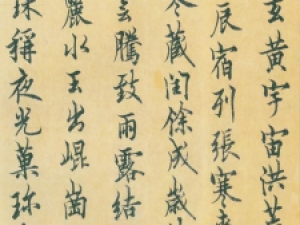 玄黃宇宙洪荒
辰宿列張寒來
冬藏閏餘成歲
雲騰致雨露結
麗水玉出崐崗
珠稱夜光菓珍